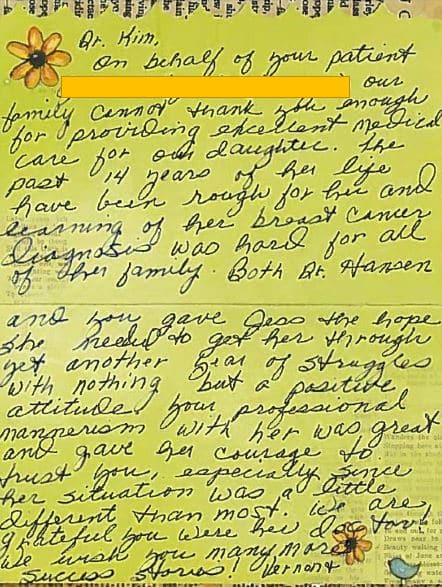 Dr. Kim,
On behalf of your patient
our
family cannot thank you enough
for providing excellent medical
care for our daughter. The
past 14 years of her life
have been rough for her and
learning of her breast cancer
diagnosis was hard for all
of her family. Both Dr. Hansen
and you gave Jess the hope
she needed to get her through
yet another year of struggles
with nothing but a positive
attitude. your professional
mannerism with her was great
and gave her courage to
trust you, especially since
her situation was a little
different than most. We are
grateful you were her doctor!
We wish you many more
success stories! Vermont